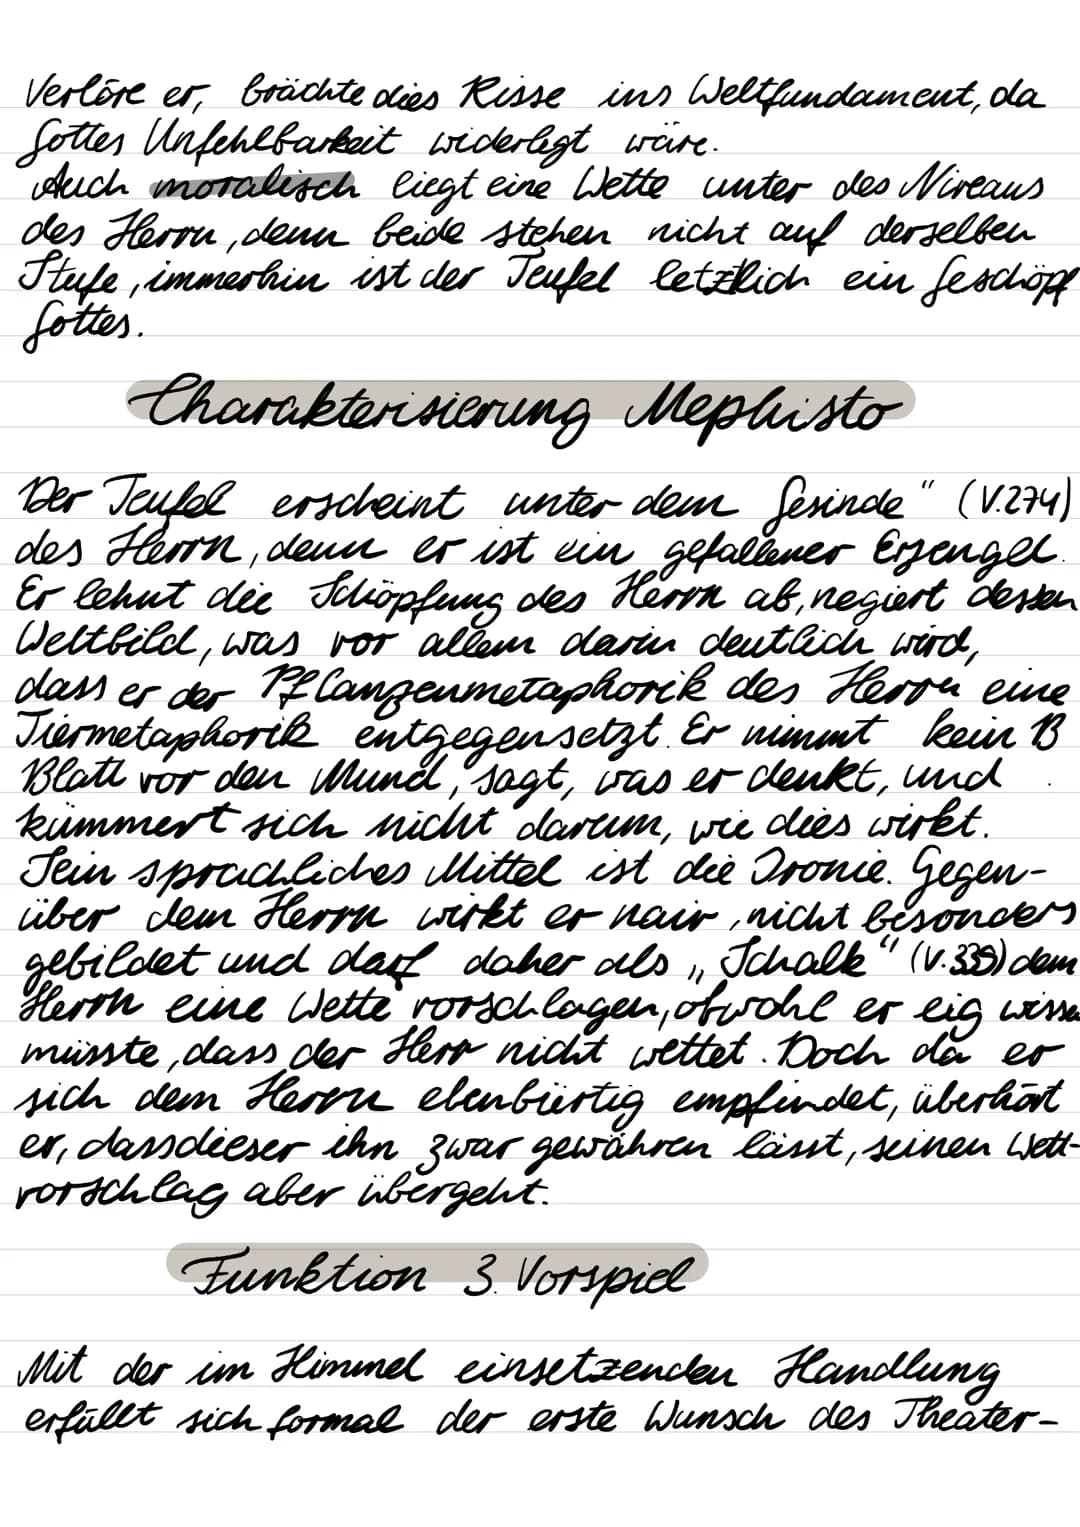 Verlöre er, brächte dies Risse ins Weltfundament, da
Gottes Unfehlbarkeit widerlegt wäre.
Auch moralisch liegt eine Wette unter des Niveaus
des Herrn, denn beide stehen nicht auf derselben
Stufe, immerhin ist der Teufel letztlich ein Geschöpf
Gottes.
Charakterisierung Mephisto
Der Teufel erscheint unter dem Gesinde" (V.274)
des Herrn, denn er ist ein gefallener Erzengel.
Er lehnt die Schöpfung des Herrn ab, negiert dessen
Weltbild, was vor allem darin deutlich wird,
dass er der Pflanzenmetaphorik des Herrn eine
Tiermetaphorik entgegensetzt. Er nimmt kein B
Blatt vor den Mund, sagt, was er denkt, und
kümmert sich nicht darum, wie dies wirkt.
Sein sprachliches Mittel ist die Ironie. Gegen-
über dem Herrn wirkt er naiv, nicht besonders
gebildet und darf daher als „Schalk" (V.339) dem
Herrn eine Wette vorschlagen, obwohl er eig wissen
müsste, dass der Herr nicht wettet. Doch da er
sich dem Herrn ebenbürtig empfindet, überhört
er, dass dieser ihn zwar gewähren lässt, seinen Wett-
vorschlag aber übergeht.
Funktion 3. Vorspiel
Mit der im Himmel einsetzenden Handlung
erfüllt sich formal der erste Wunsch des Theater-